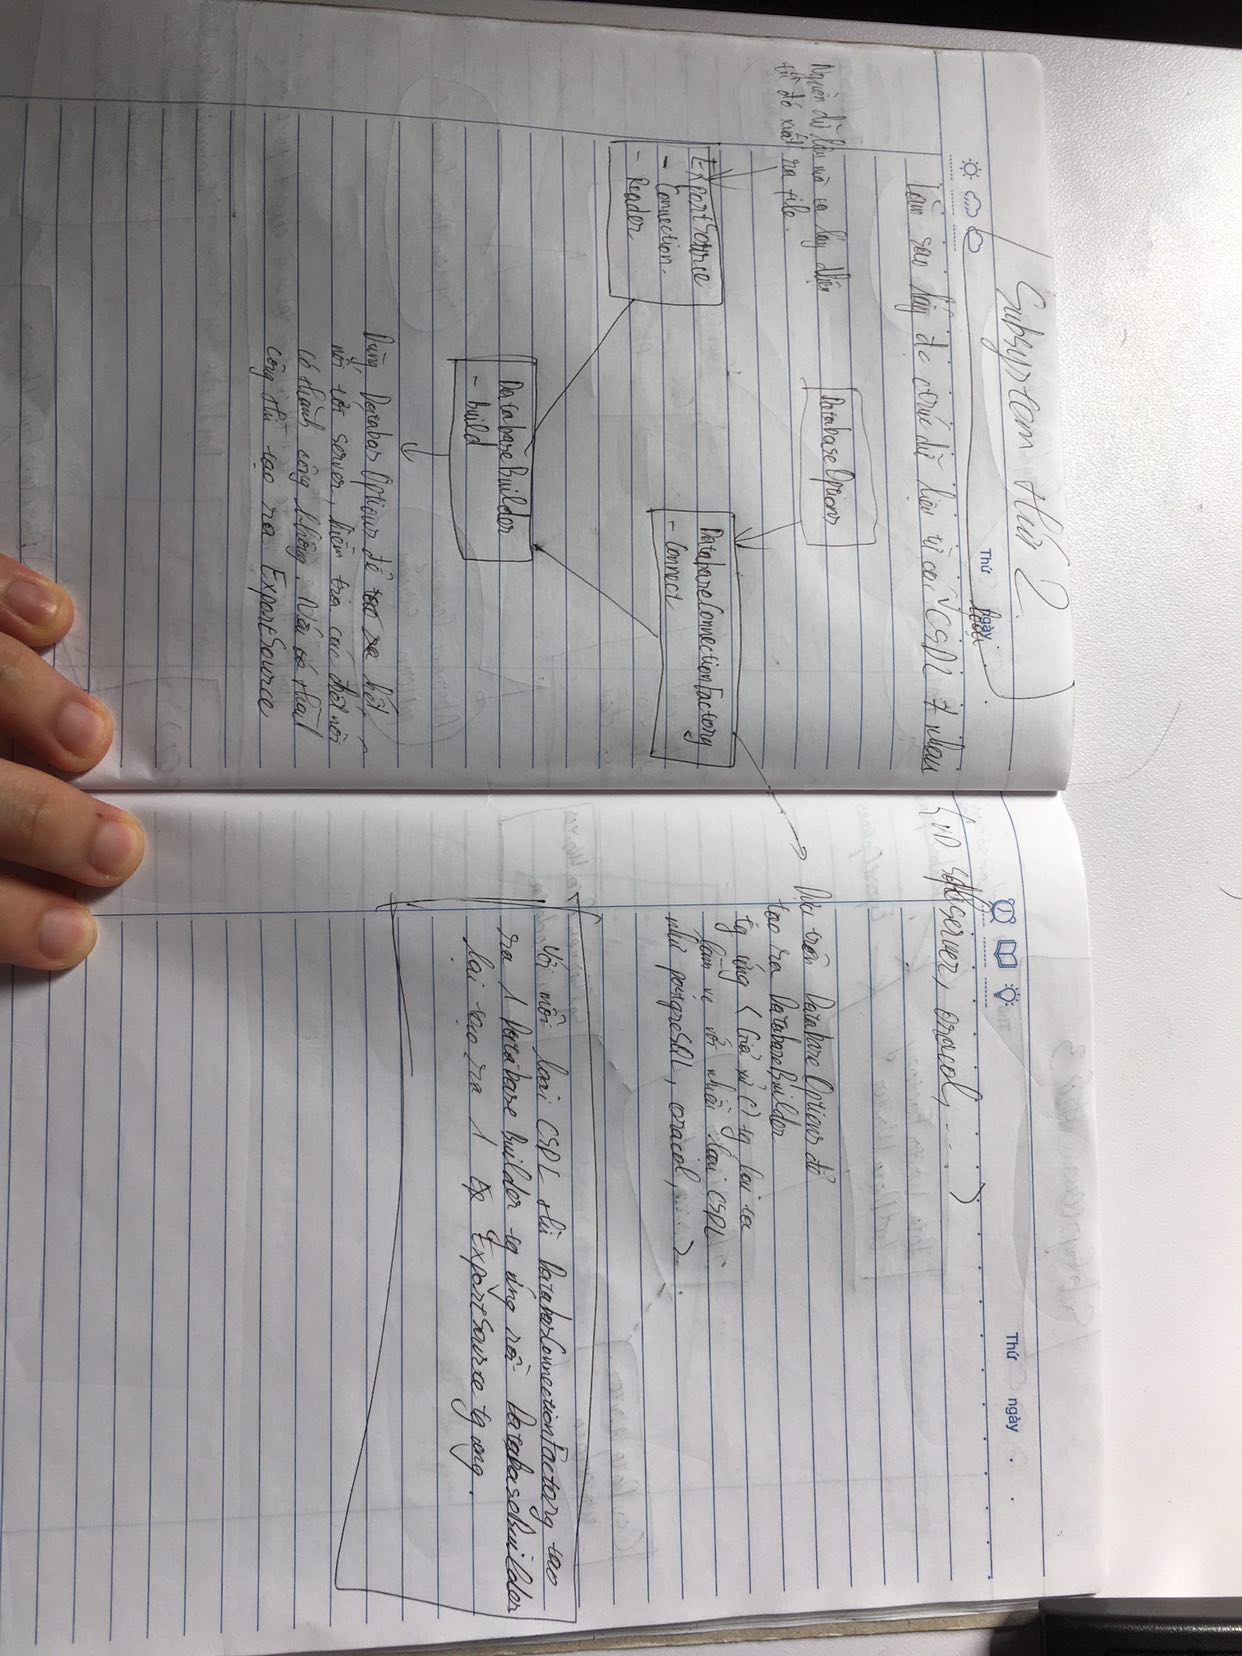 Subsystem thứ 2
Thứ
ngày
loại
Làm sao lấy đc cấu trúc dữ liệu từ các CSDL ≠ nhau
(VD sqlserver, oracol, ...)
Nguồn dữ liệu mà ta lấy
từ đó xuất ra file.
ExportSource
- Connection.
- Reader
DatabaseOptions
DatabaseConnectionFactory
- Connect
DatabaseBuilder
- build
Dùng DatabaseOptions để tạo ra kết
nối tới server, kiểm tra các kết nối
có thành công không. Nếu có thành
công thì tạo ra ExportSource
Thứ
ngày
Dựa trên DatabaseOptions để
tạo ra DatabaseBuilder
tg ứng (Giả sử tg lai ta
làm vc với nhiều loại CSDL
như postgreSQL, oracol, ...)
Với mỗi loại CSDL thì DatabaseConnectionFactory tạo
ra 1 DatabaseBuilder tg ứng rồi DatabaseBuilder
lại tạo ra 1 ExportSource tg ứng.